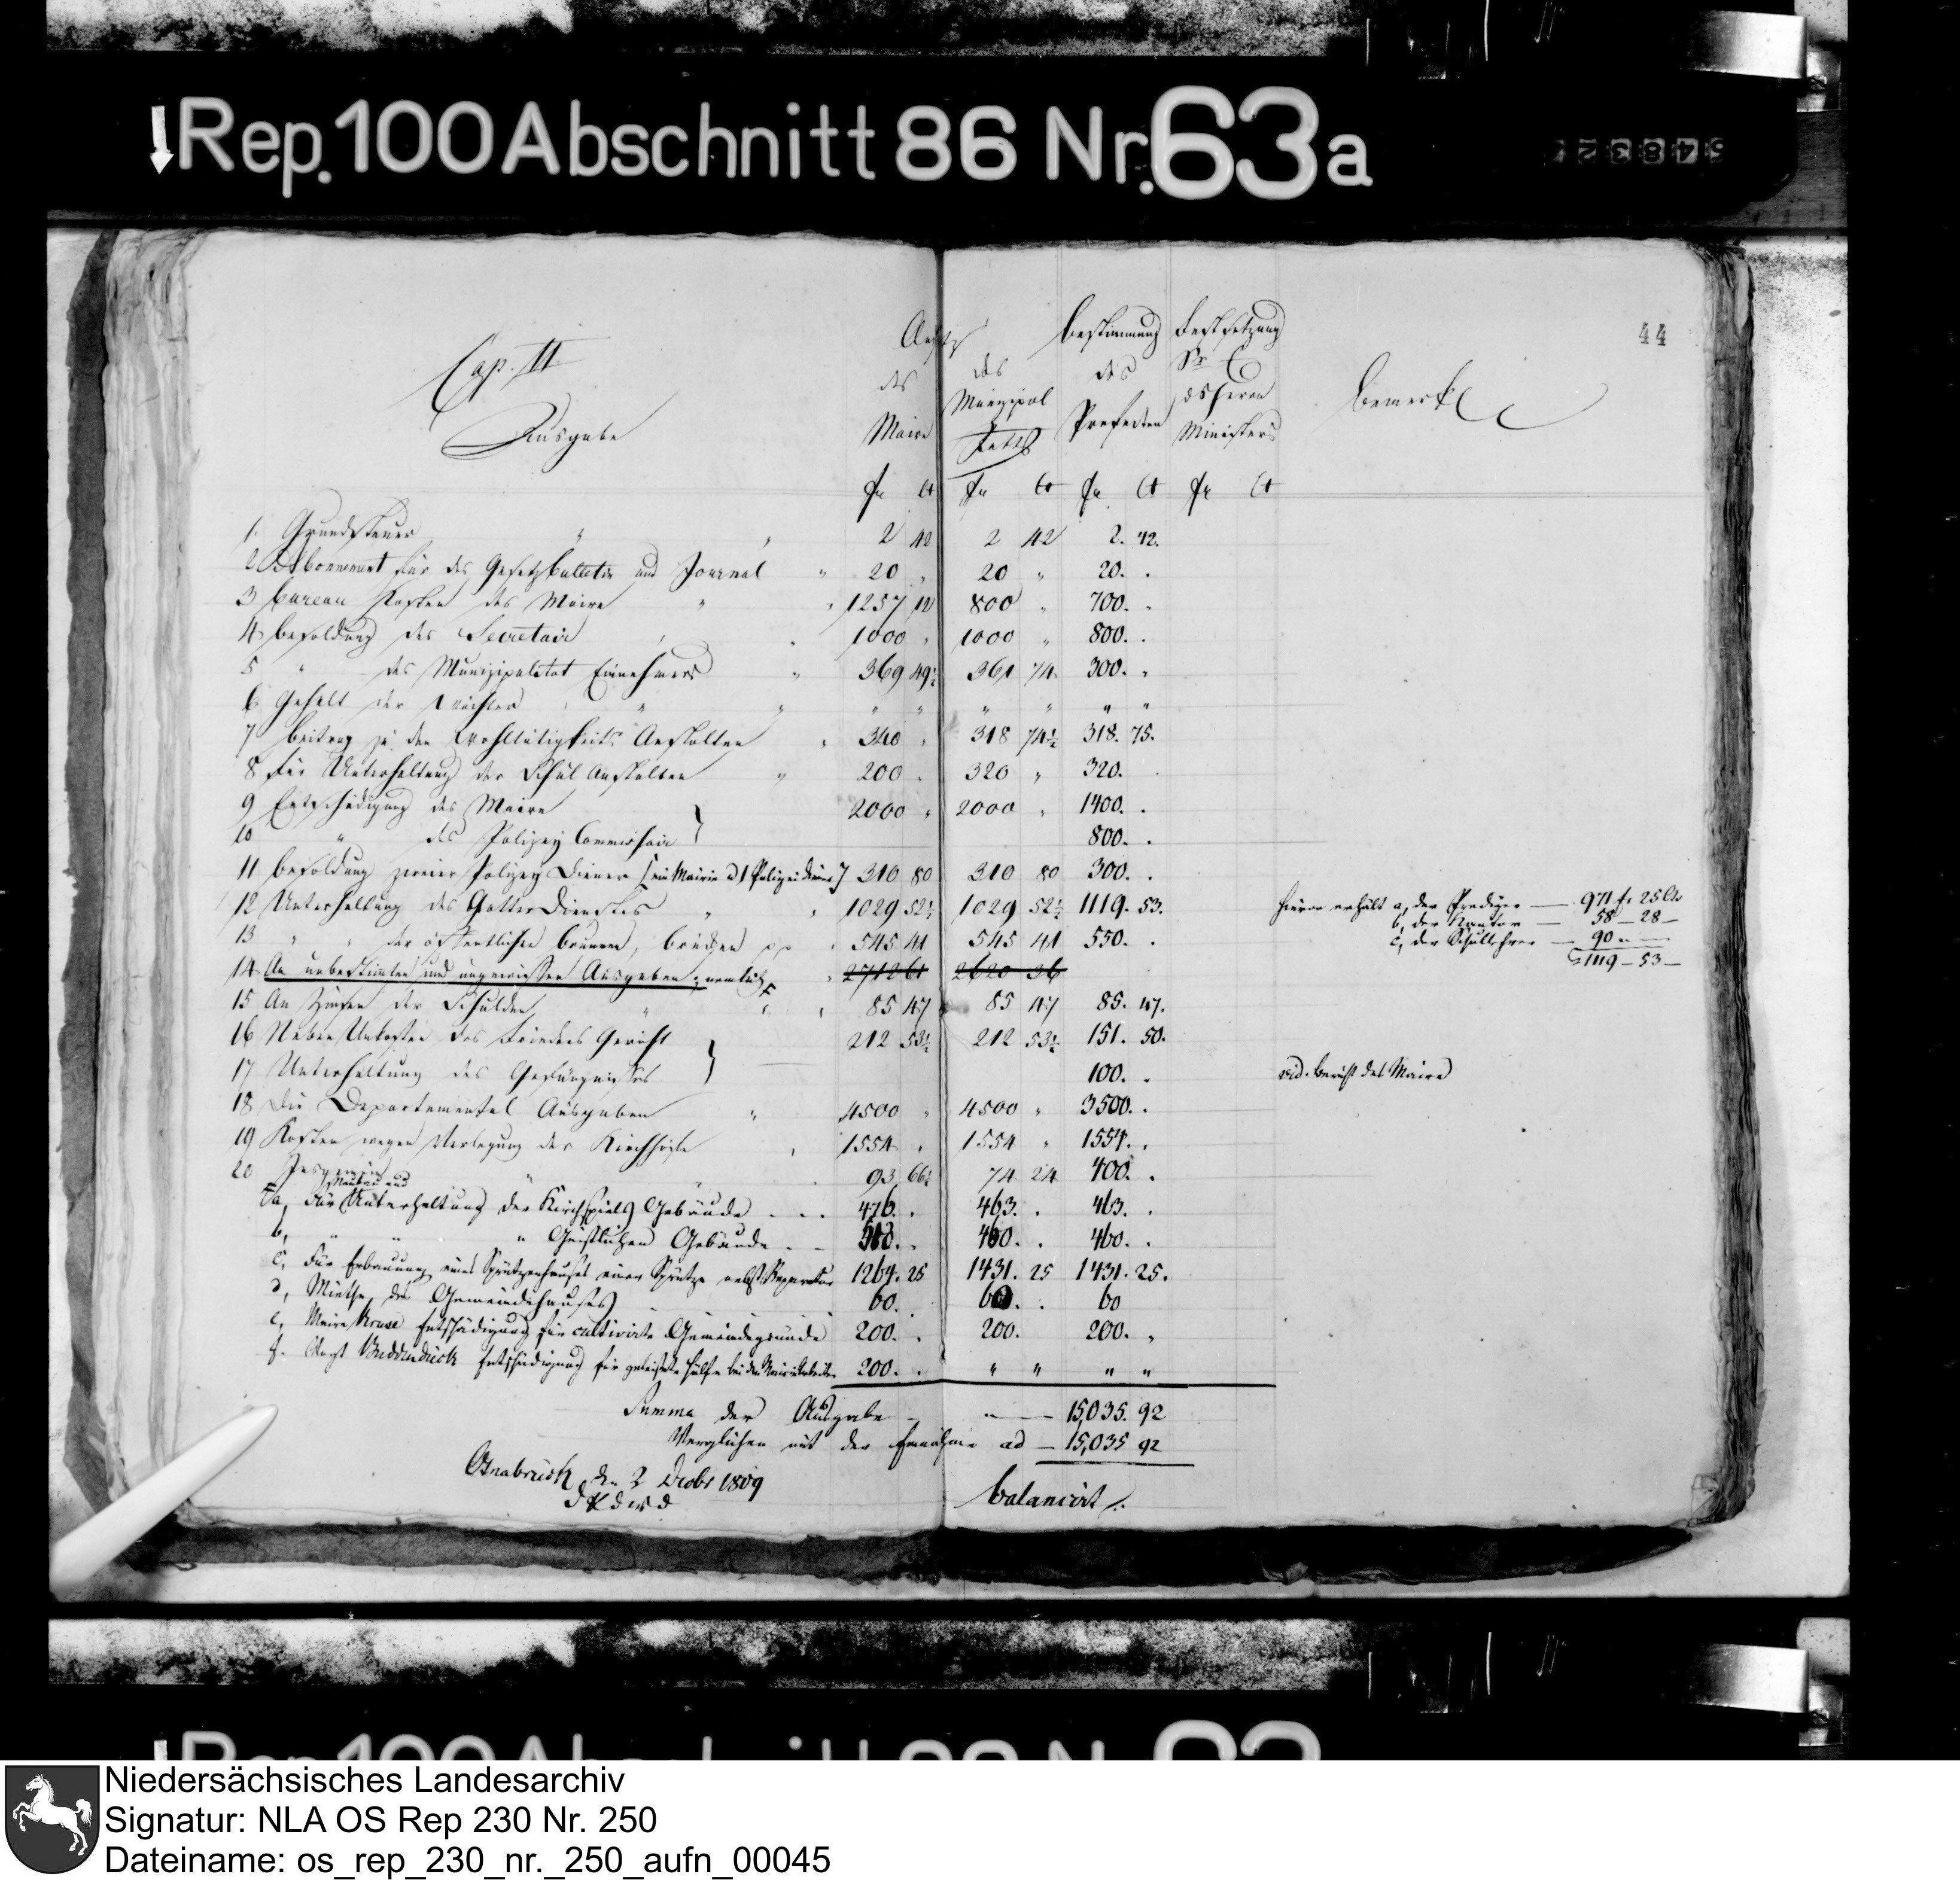 Rep. 100 Abschnitt 86 Nr. 63a
44
Cap. II
Ausgabe
Ansatz
des Maire
des Munizipal Raths
Bestimmung des Praefecten
Festsetzung Sr E des Herrn Ministers
Bemerke
fr Ct fr Ct fr Ct fr Ct
1. Grundsteuer " " 2 42 2 42 2. 42.
2 Abonnement für das Gesetzbulletin und Journal " 20 " 20 " 20. .
3 Bureau Kosten des Maire " " 1257 12 800 " 700. .
4 Besoldung des Secretair 1000 " 1000 " 800. .
5 " des Munizipalitat Einnehmers " 369 49½ 361 74 300. .
6 Gehalt der Wächter " " " " " " " "
7 Beitrag zu den Wohltätigkeits Anstalten 340 " 318 74½ 318. 75.
8 Für Unterhaltung der Schul Anstalten " 200 . 320 " 320. .
9 Entschädigung des Maire 2000 " 2000 " 1400. .
10 " des Polizey Commissair 800. .
11 Besoldung zweier Polizey Diener [ein Mairie u 1 Polizeidiener] 310 80 310 80 300. .
12 Unterhaltung des Gottesdienstes " " 1029 52½ 1029 52½ 1119. 53.
hievon erhält a, der Prediger — 971 fr 25 Cts
b, der Kantor — 58 — 28 —
c, der Schullehrer — 90 " —
1119 — 53 —
13 " " der öffentlichen Brunnen, Brücken pp 545 41 545 41 550. .
14 An unbestimmten und ungewissen Ausgaben, nemlich 2712 61 2620 36
15 An Zinsen der Schulden " " 85 47 85 47 85. 47.
16 Neben Unkosten des Friedens Gericht 212 53½ 212 53½ 151. 50.
17 Unterhaltung des Gefängnisses 100. .
vid. Bericht des Maire
18 Die Departemental Ausgaben " 4500 " 4500 " 3500. .
19 Kosten wegen Verlegung der Kirchhöfe 1554 . 1554 " 1554. .
20 Insgemein " 93 66½ 74 24 400. .
a, Für Neubau und Unterhaltung der Kirchspiels Gebäude . . . 476. . 463. . 463. .
b, " " " Geistlichen Gebäude . — 460. . 460. .
c, Für Erbauung eines Sprützenhauses einer Sprütze nebst Reparatur 1264. 25 1431. 25 1431. 25.
d, Miethe des Gemeindehauses 60. . 60. . 60
e, Maire Kruse Entschädigung für cultivirte Gemeindegründe 200. . 200. 200. "
f. Vogt Buddendieck Entschädigung für geleistete Hülfe bei den Mairie Arbeiten 200. . " " " "
Summa der Ausgabe — " — 15,035. 92
Verglichen mit der Einnahme ad — 15,035 92
balancirt.
Osnabrück den 2 Decbr 1809
Niedersächsisches Landesarchiv
Signatur: NLA OS Rep 230 Nr. 250
Dateiname: os_rep_230_nr._250_aufn_00045